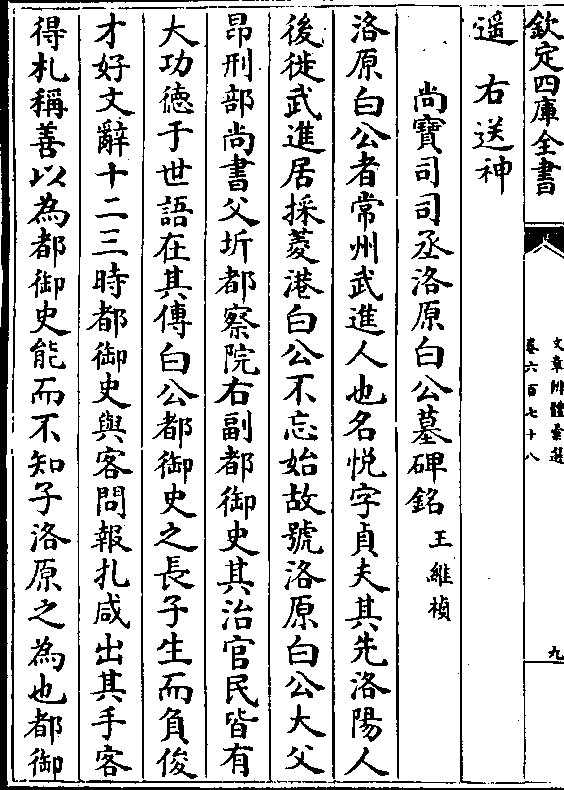 欽定四庫全書
文章辨體彙選
卷六百七十八
九
遥右送神
尚寶司司丞洛原白公墓碑銘王維楨
洛原白公者常州武進人也名悦字貞夫其先洛陽人
後徙武進居採菱港白公不忘始故號洛原白公大父
昂刑部尚書父圻都察院右副都御史其治官民皆有
大功徳于世語在其傳白公都御史之長子生而負俊
才好文辭十二三時都御史與客問報札咸出其手客
得札稱善以為都御史能而不知子洛原之為也都御